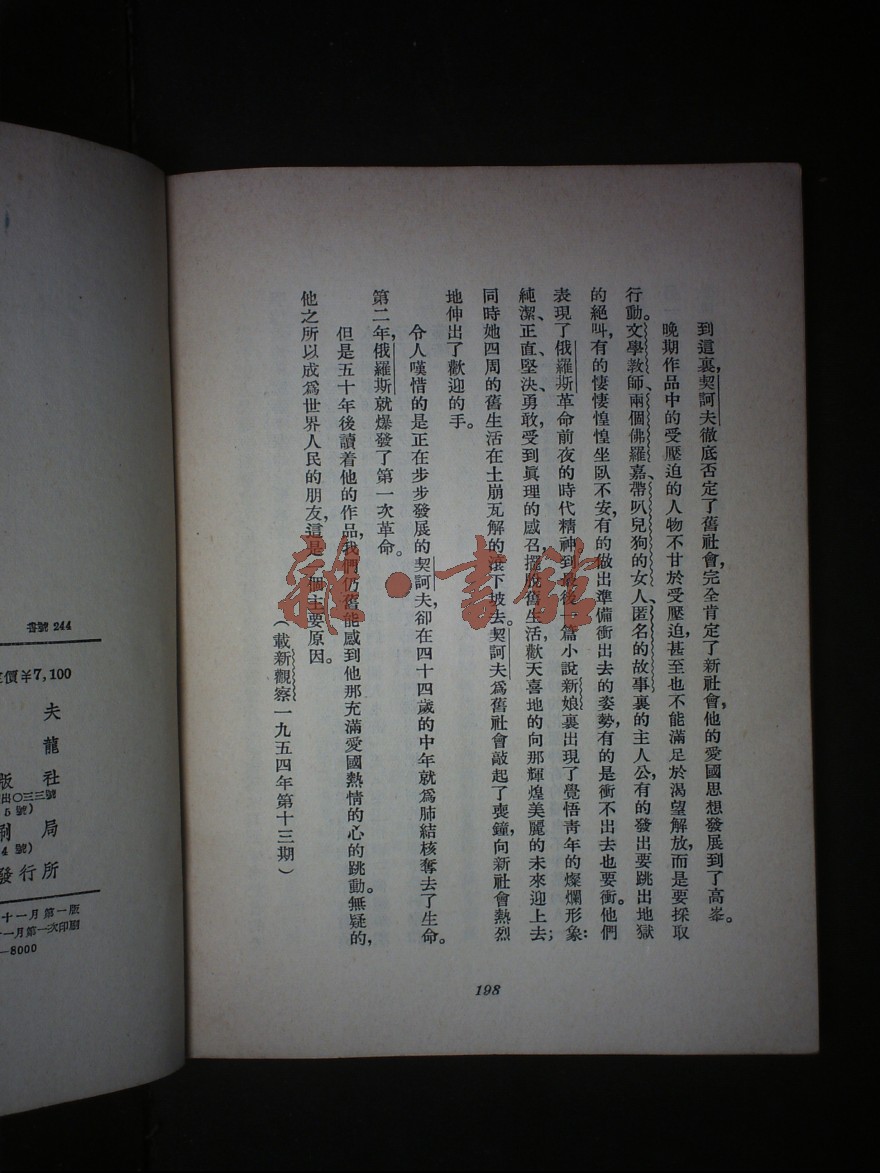 到這裏,契訶夫徹底否定了舊社會,完全肯定了新社會,他的愛國思想發展到了高峯。
晚期作品中的受壓迫的人物不甘於受壓迫,甚至也不能滿足於渴望解放,而是要採取
行動。文學教師、兩個佛羅嘉、帶叭兒狗的女人、匿名的故事裏的主人公,有的發出要跳出地獄
的絕叫,有的悽悽惶惶坐臥不安,有的做出準備衝出去的姿勢,有的是衝不出去也要衝。他們
表現了俄羅斯革命前夜的時代精神。到最後一篇小說新娘裏出現了覺悟靑年的燦爛形象:
純潔、正直、堅決、勇敢,受到眞理的感召,擺脫舊生活,歡天喜地的向那輝煌美麗的未來迎上去;
同時她四周的舊生活在土崩瓦解的滾下坡去。契訶夫爲舊社會敲起了喪鐘,向新社會熱烈
地伸出了歡迎的手。
令人嘆惜的是正在步步發展的契訶夫,卻在四十四歲的中年就爲肺結核奪去了生命。
第二年,俄羅斯就爆發了第一次革命。
但是五十年後讀着他的作品,我們仍舊能感到他那充滿愛國熱情的心的跳動。無疑的,
他之所以成爲世界人民的朋友,這是一個主要原因。
(載新觀察一九五四年第十三期)
198
雜·書館
書號 244
價¥7,100
夫
龍
版社
出〇三三號
5號)
刷局
4號)
發行所
十一月第一版
一月第一次印刷
—8000